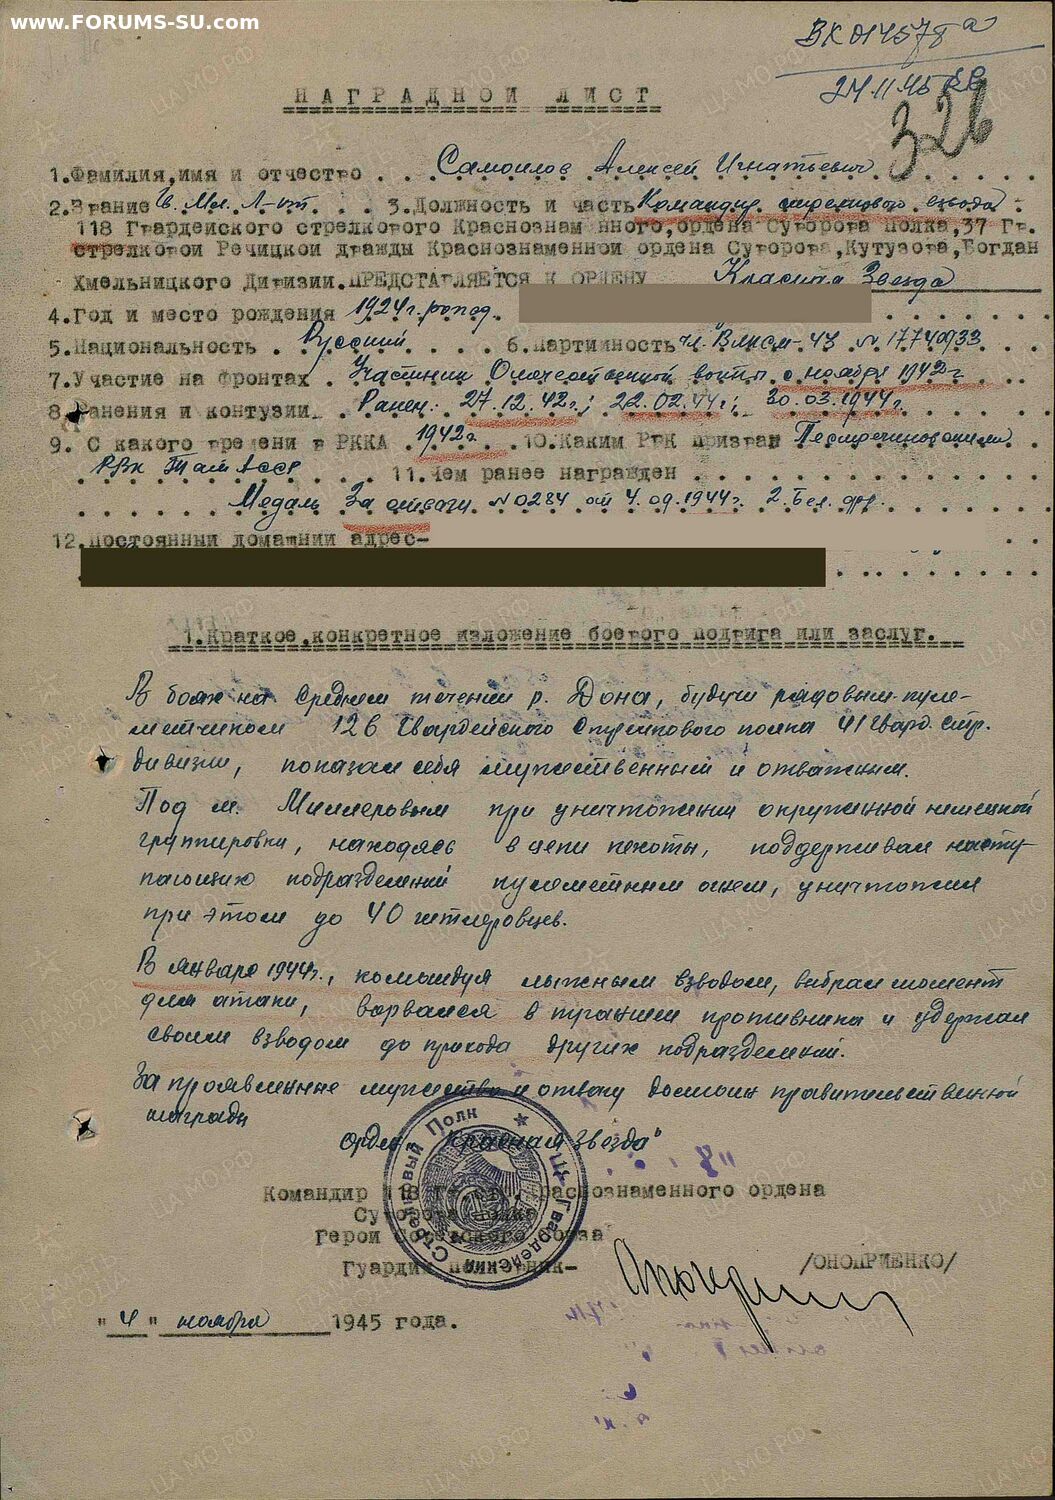 www.FORUMS-SU.com
ВК 014578 а
24 11 45
326
НАГРАДНОЙ ЛИСТ
1.Фамилия,имя и отчество . . . Самоилов Алексей Игнатьевич
2.Звание Гв. Мл. Л-нт. . . 3.Должность и часть Командир стрелкового взвода
118 Гвардейского стрелкового Краснознаменного,ордена Суворова Полка,37 Гв.
стрелковой Речицкой дважды Краснознаменной ордена Суворова,Кутузова,Богдан
Хмельницкого Дивизии.ПРЕДСТАВЛЯЕТСЯ К ОРДЕНУ Красная Звезда
4.Год и место рождения 1924г.
5.Национальность . Русский . . . . 6.Партийность чл. ВЛКСМ-43 №
7.Участие на фронтах . Участник Отечественной войны с ноября 1942г.
8.Ранения и контузии. . Ранен: 27.12.42г.; 22.02.44г.; 30.03.1944г.
9. С какого времени в РККА . 1942г. . 10.Каким РВК призван Пестречиновским
РВК ТатАССР . . . . . 11.Чем ранее награжден . . . . . . .
Медаль За отвагу №0284 от 4.09.1944г. 2. Бел. фр.
12.Постоянный домашний адрес-
1.Краткое,конкретное изложение боевого подвига или заслуг.
В боях на Среднем течении р. Дона, будучи рядовым пуле-
метчиком 126 Гвардейского Стрелкового полка 41 Гвард. стр.
дивизии, показал себя мужественным и отважным.
Под м. Миллеровым при уничтожении окруженной немецкой
группировки, находясь в цепи пехоты, поддерживал насту-
пающих подразделений пулеметным огнем, уничтожил
при этом до 40 гитлеровцев.
В январе 1944г., командуя лыжным взводом, выбрал момент
для атаки, ворвался в траншеи противника и удержал
своим взводом до прихода других подразделений.
За проявленные мужество и отвагу достоин правительственной
награды
Орден "Красная Звезда"
Командир 118 Гв. Краснознаменного ордена
Суворова полка
Герой Советского Союза
Гвардии полковник-
/ОНОПРИЕНКО/
Стрелковый Полк
Гвардейский
"4" ноября 1945 года.